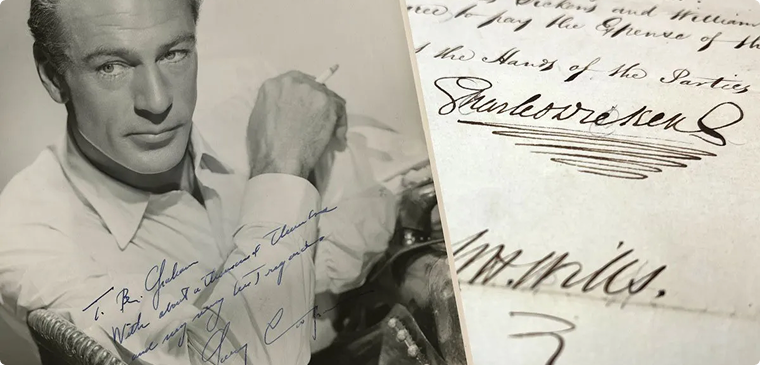 T. Ben Graham
With about a thousand thanks
and my very best regards
Gary Cooper
Dickens and William
to pay the Expense of th
the Hands of the Parties
Charles Dickens
W.H. Wills.
3